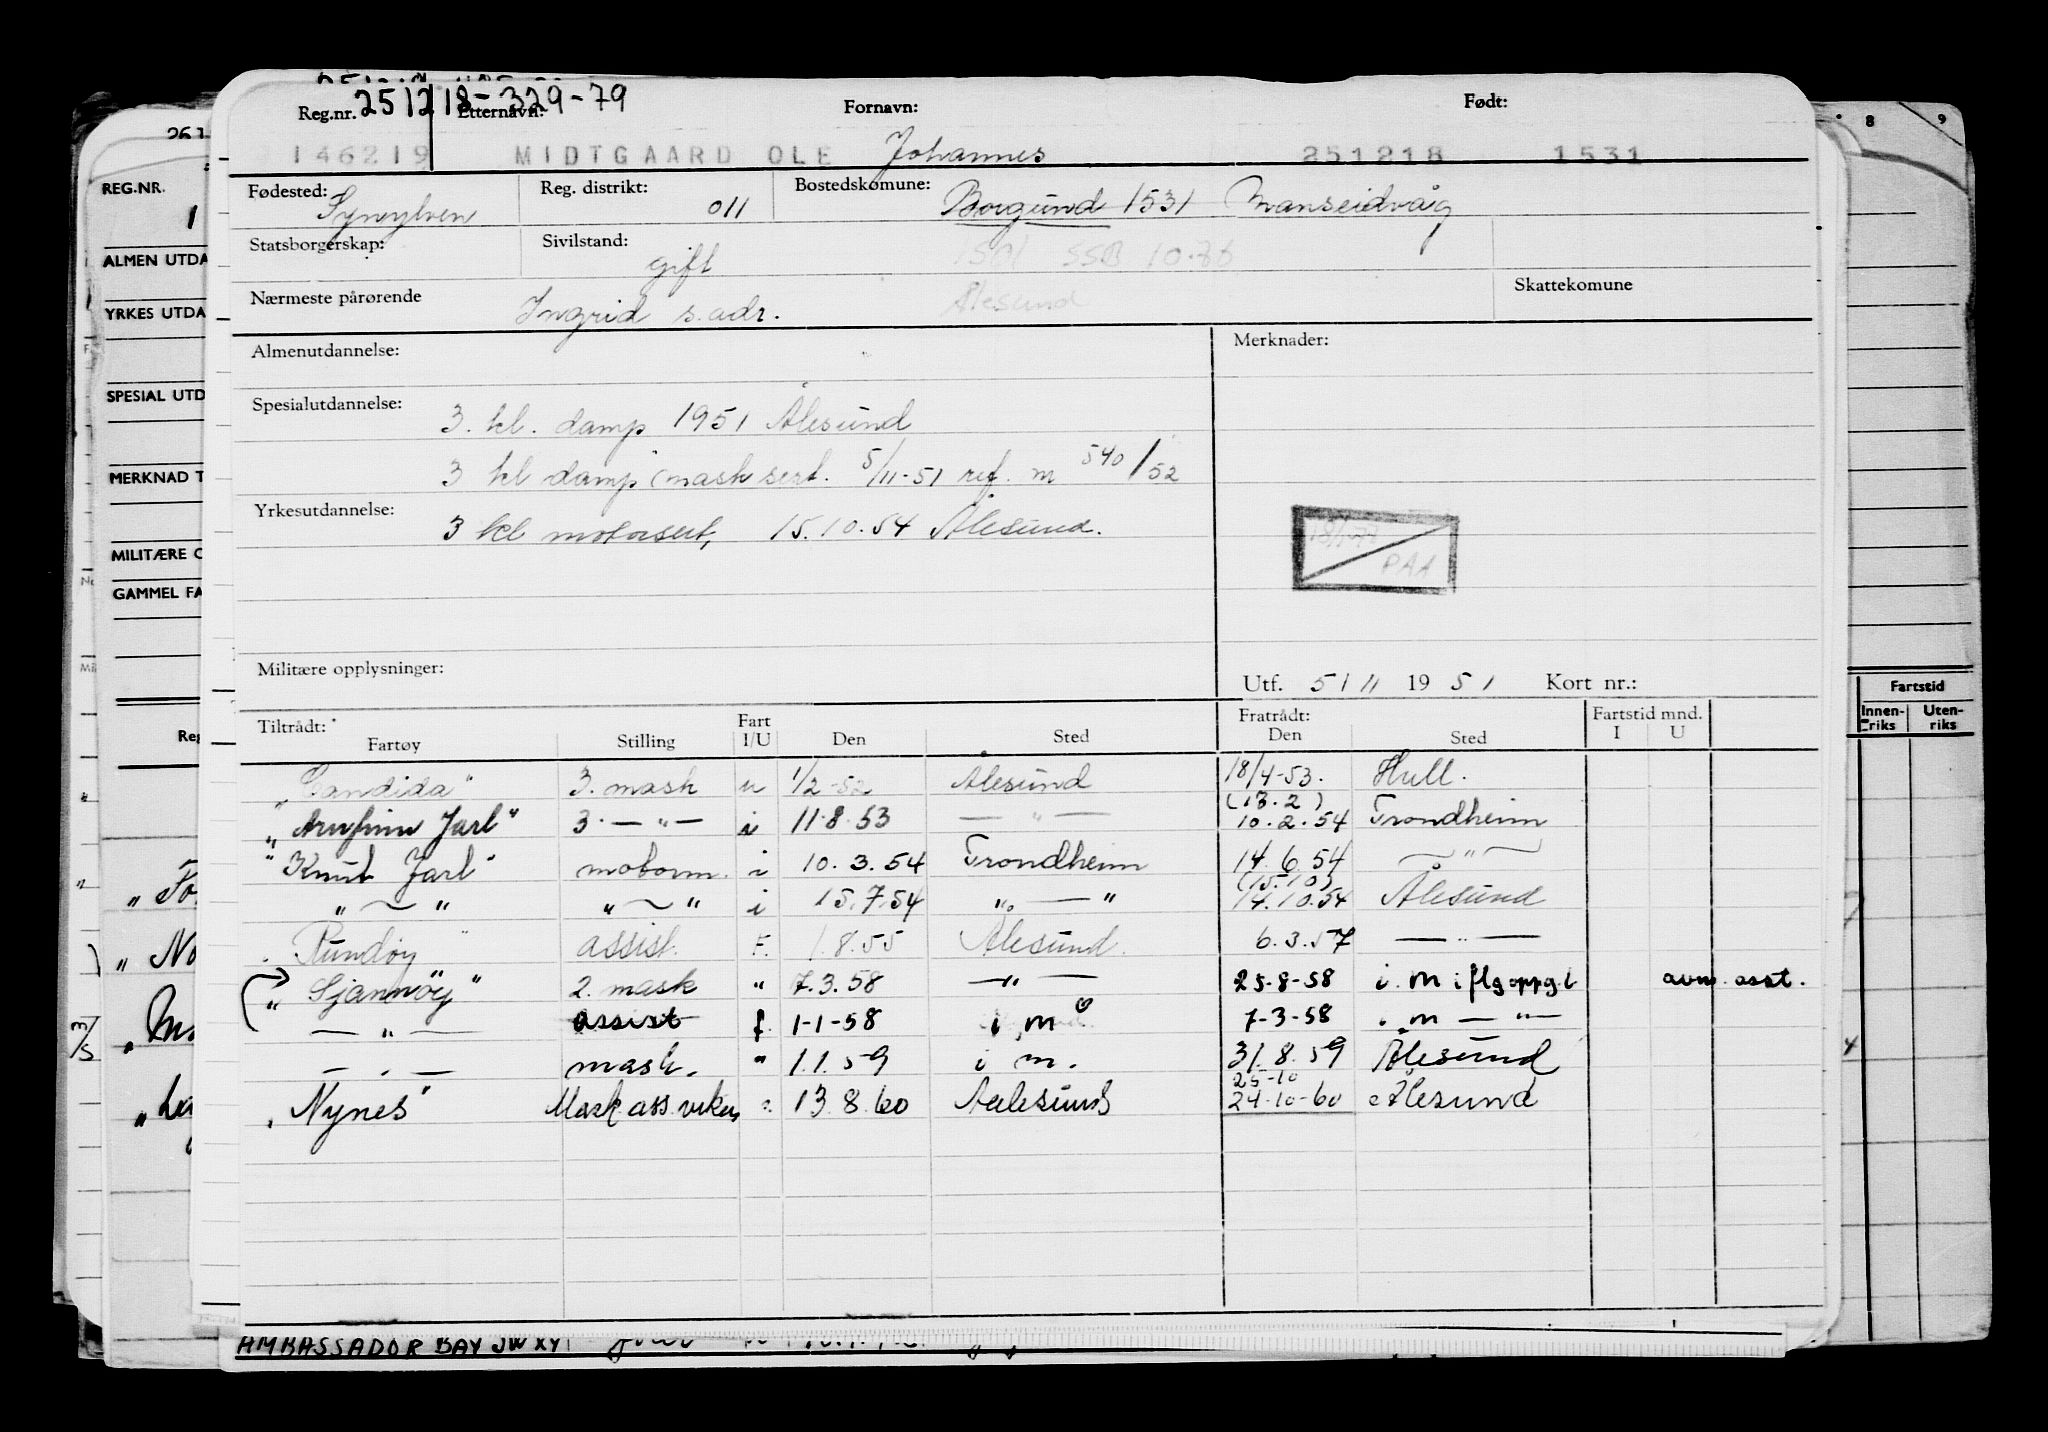 Reg.nr. 251218-329-79 Etternavn: Fornavn: Født:
146219 MIDTGAARD OLE Johannes 251218 1531
Fødested: Synylven Reg. distrikt: 011 Bostedskomune: Borgund 1531 Mauseidvåg
Statsborgerskap: Sivilstand: gift SSB 10.76
Nærmeste pårørende Ingrid s. adr. Ålesund Skattekomune
Almenutdannelse: Merknader:
Spesialutdannelse: 3. kl. damp 1951 Ålesund
3 kl damp mask sert. 5/11-51 ref. m 540/52
Yrkesutdannelse: 3 kl motorsert, 15.10.54 Ålesund.
PAA
Militære opplysninger:
Utf. 5/11 1951 Kort nr.:
Tiltrådt: Fratrådt: Fartstid mnd.
Fartøy Stilling Fart I/U Den Sted Den Sted I U
"Candida" 3. mask u 1/2-52 Ålesund 18/4-53. Hull.
"Arnfinn Jarl" 3. — " — i 11.8.53 — " — (13.2) 10.2.54 Trondheim
"Knut Jarl" motorm. i 10.3.54 Trondheim 14.6.54 — " —
" — " " — " i 15.7.54 " — " (15.10) 14.10.54 Ålesund
"Rundøy" assist. F. 1.8.55 Ålesund. 6.3.57 — " —
"Sjannøy" 2. mask " 7.3.58 — " — 25-8-58 i. m iflg oppg.l avm. asst.
— " — assist f. 1-1-58 i m 7-3-58 i m — " —
— " — mask. " 1.1.59 i m. 31.8.59 Ålesund
"Nynes" Mask. ass. vikar " 13.8.60 Aalesund 25-10 24-10-60 Ålesund
REG.NR.
ALMEN UTDA
YRKES UTDA
SPESIAL UTD
MERKNAD T
MILITÆRE O
GAMMEL FA
Reg
8 9
Fartstid
Innenriks Utenriks
AMBASSADOR BAY JWXY